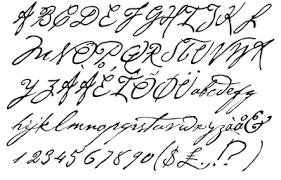 A B C D E F G H I J K L
M N O P Q R S T U V W X
Y Z À Å É Î Õ Ü a b c d e f g
h i j k l m n o p q r s t u v w x y z à å &
1 2 3 4 5 6 7 8 9 0 ( $ £ . , ! ? )